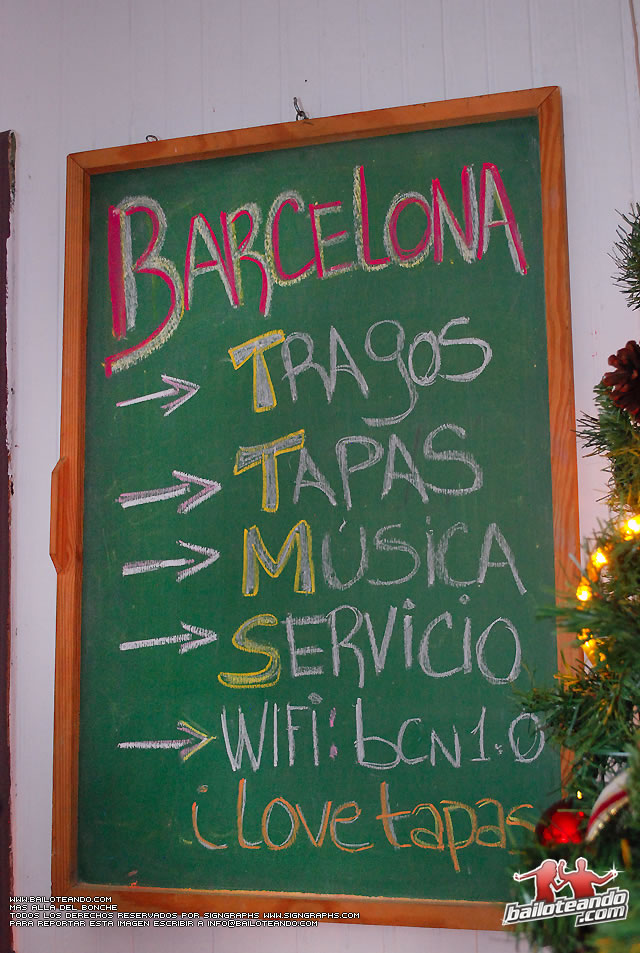 BARCELONA
TRAgOS
TAPAS
MÚSiCA
SERViCiO
WIFi: bCN1.0
ilovetapas
WWW.BAILOTEANDO.COM
MAS ALLA DEL BONCHE
TODOS LOS DERECHOS RESERVADOS POR SIGNGRAPHS WWW.SIGNGRAPHS.COM
PARA REPORTAR ESTA IMAGEN ESCRIBIR A INFO@BAILOTEANDO.COM
bailoteando
.com